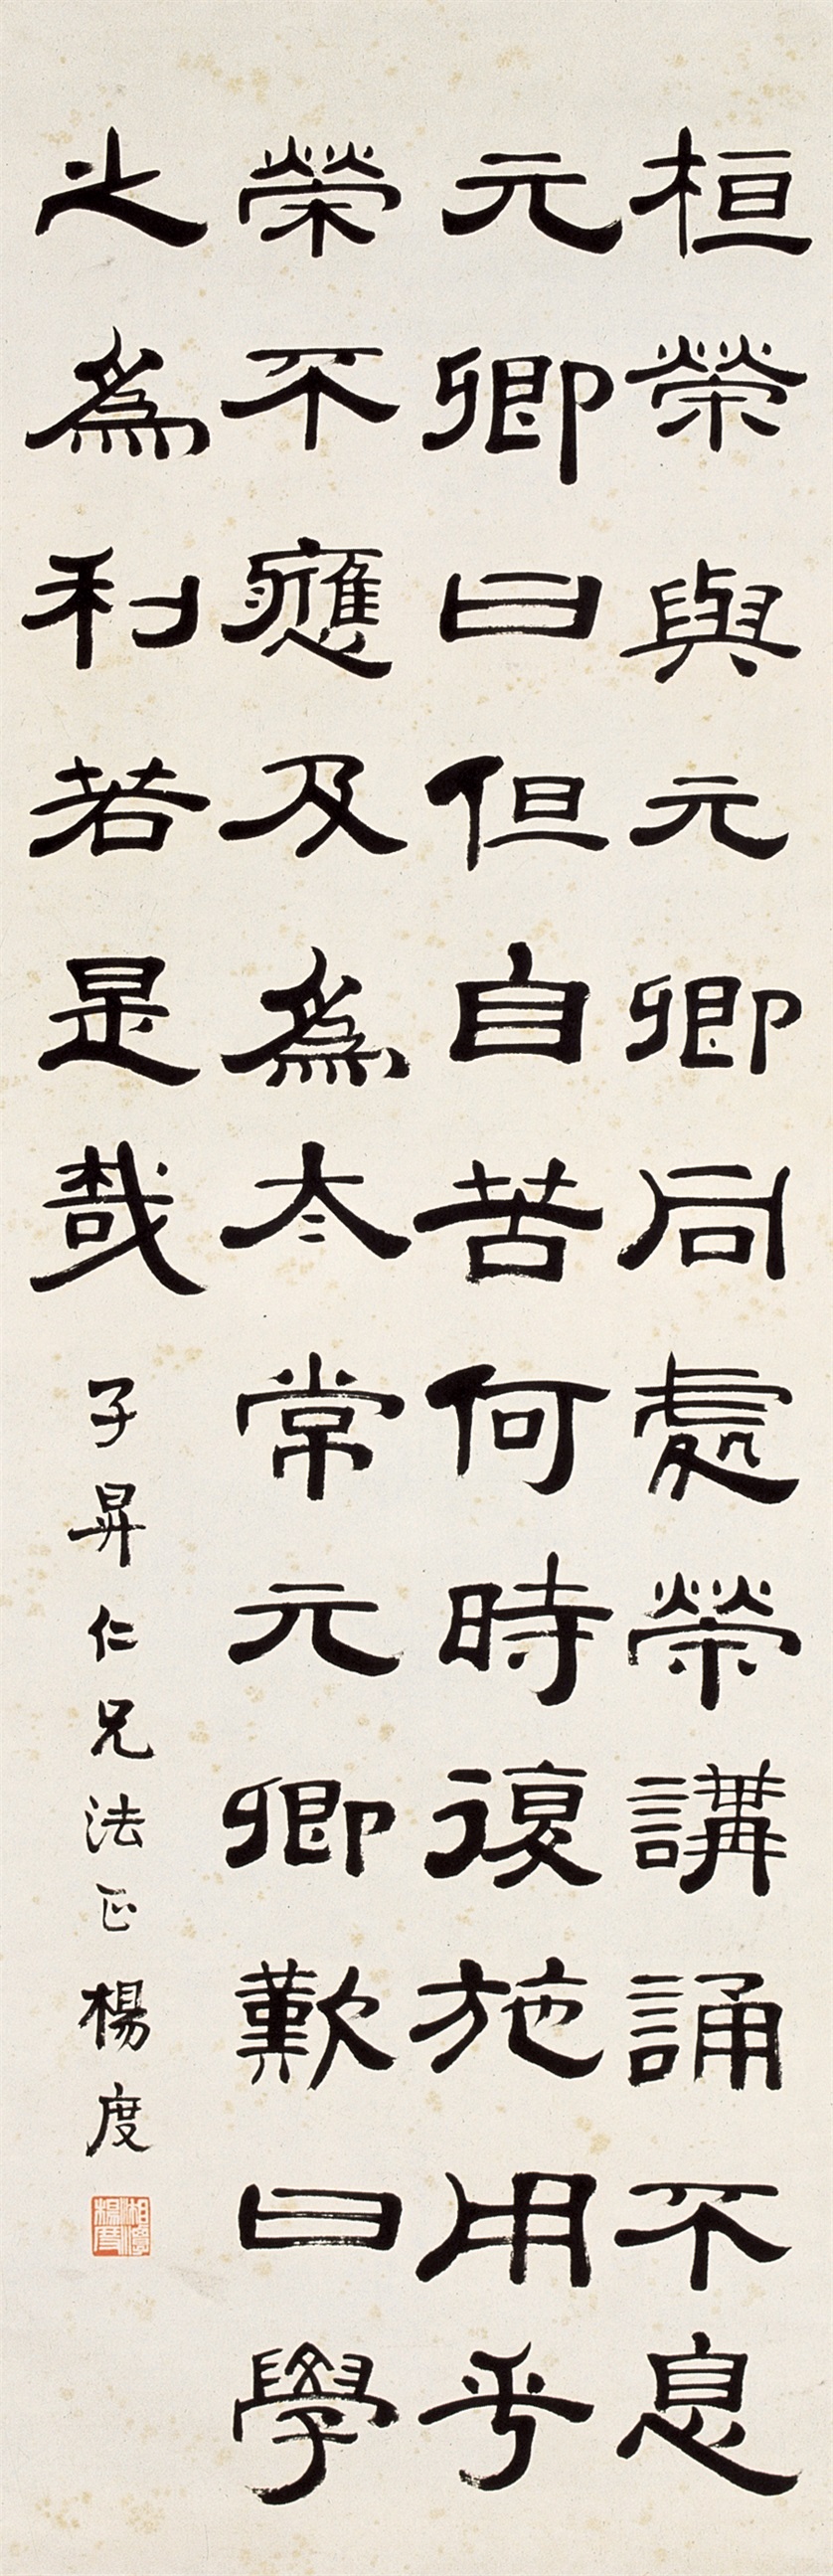 桓榮與元卿同處榮講誦不息
元卿曰但自苦何時復施用乎
榮不應及為太常元卿歎曰學
之為利若是哉
子昇仁兄法正 楊度
湘潭楊度